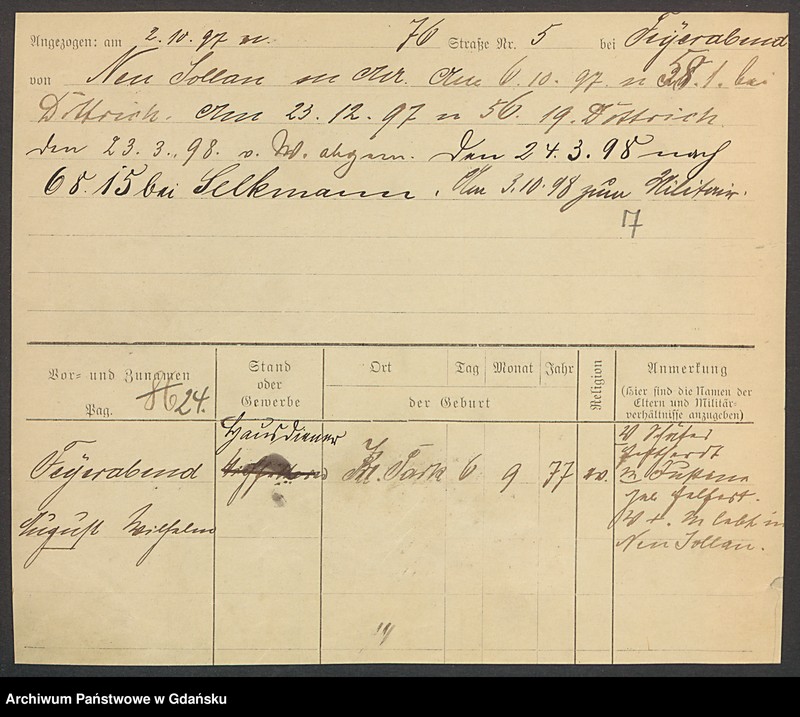 Angezogen: am 2.10.97 v. 76 Straße Nr. 5 bei Feÿerabend
von Neu Sollau in Am 6.10.97. n 58.1. bei
Döttrich. Am 23.12.97 n 56. 19. Döttrich
den 23.3.98. v. W. abgem. Den 24.3.98 nach
68.15 bei Selkmann. Am 3.10.98 zum Militair.
7
Vor= und Zunamen
Pag. 86 24.
Stand oder Gewerbe
Ort Tag Monat Jahr
der Geburt
Religion
Anmerkung
(Hier sind die Namen der
Eltern und Militär-
verhältnisse anzugeben)
Hausdiener
Feÿerabend Kl. Park 6 9 77 ev.
August Wilhelm
V Schäfer
Gotthardt
M
geb.
V +. M lebt in
Neu Sollau.
Archiwum Państwowe w Gdańsku